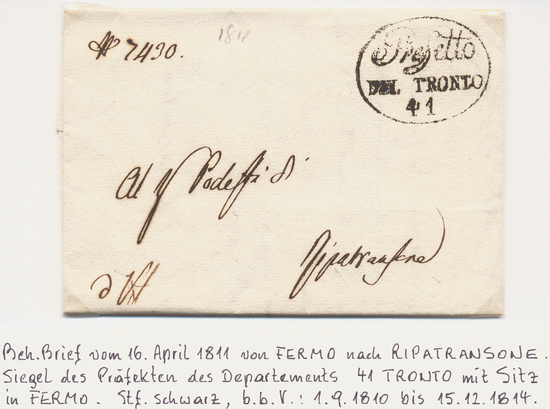 N° 7490.
1811
Prefetto
DEL TRONTO
41
Al Sig Podestà di
Ripatransone
d'Uff
Beh. Brief vom 16. April 1811 von FERMO nach RIPATRANSONE.
Siegel des Präfekten des Departements 41 TRONTO mit Sitz
in FERMO. Stf. schwarz, b.b.V.: 1.9.1810 bis 15.12.1814.